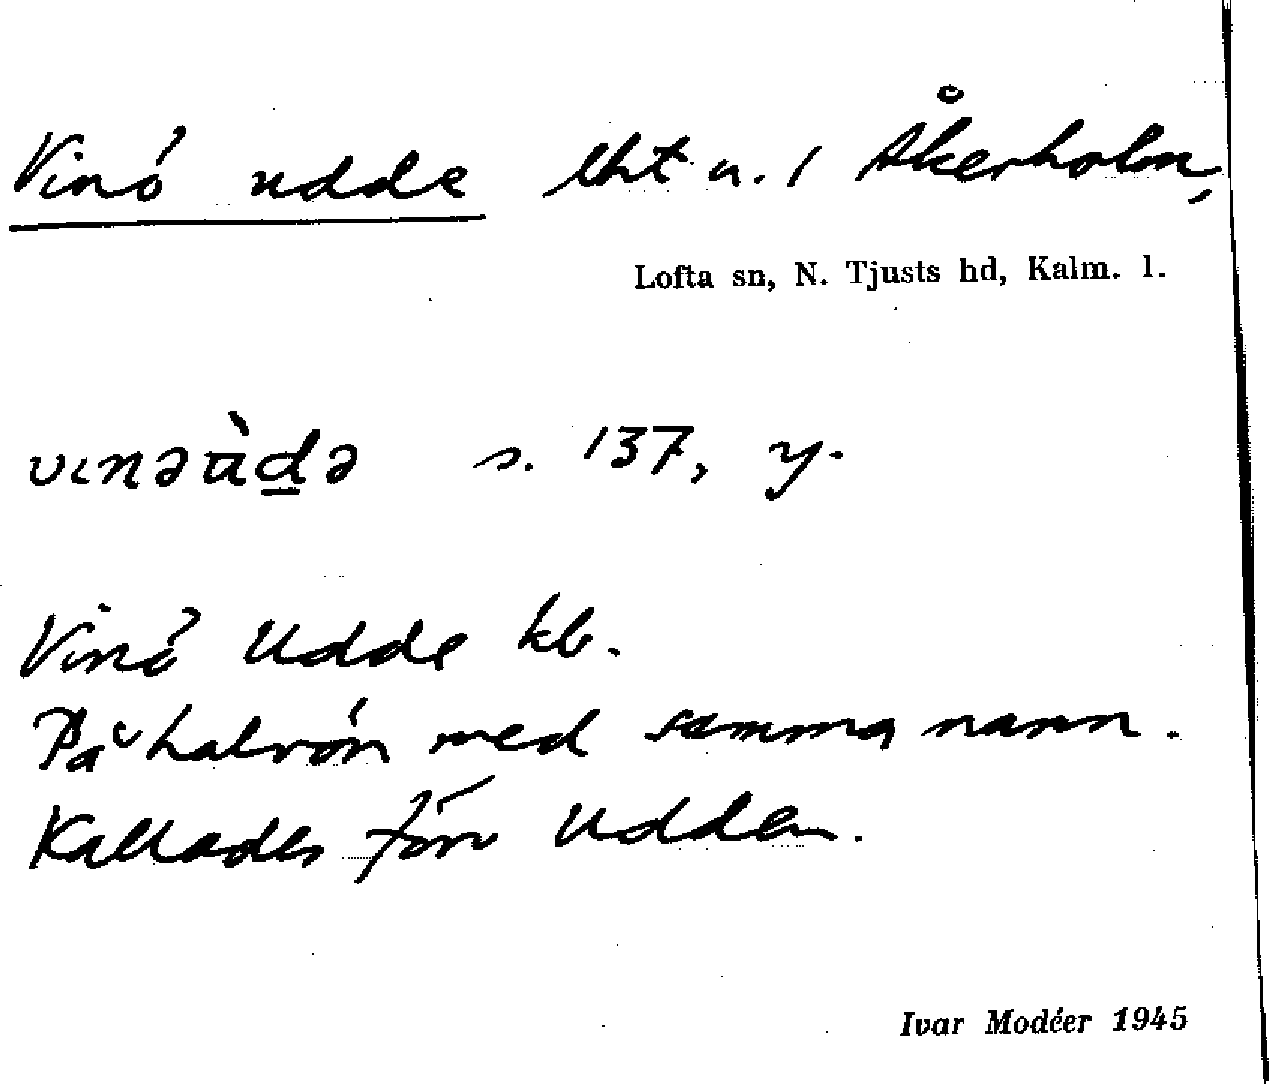 Vinö udde lht u. / Åkerholm,
Lofta sn, N. Tjusts hd, Kalm. l.
vɩnəùd̲ə s. 137, y.
Vinö Udde kb.
På halvön med samma namn.
Kallades förr Udden.
Ivar Modéer 1945